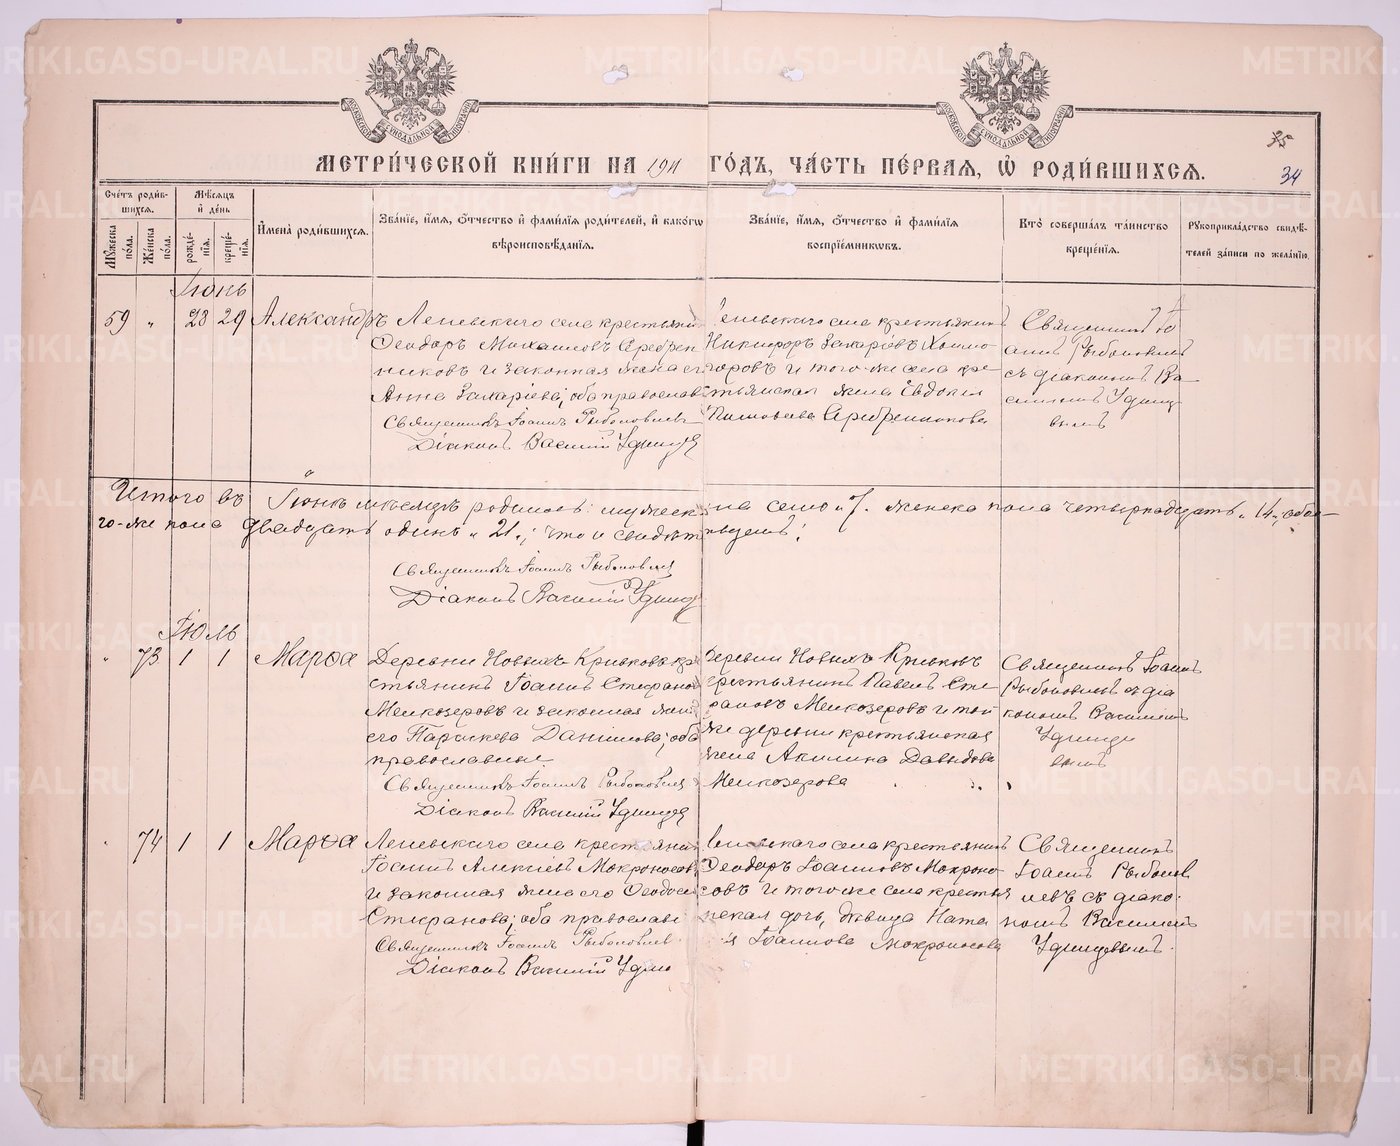 МЕТРИ́ЧЕСКОЙ КНИ́ГИ НА 1911 ГО́ДЪ, ЧА́СТЬ ПЕ́РВАЯ, Ѽ РОДИ́ВШИХСЯ.
35
34
Сче́тъ роди́вшихся.
Мѣ́сяцъ и́ де́нь
Му́жеска по́ла.
Же́нска по́ла.
рожде́нїя.
креще́нїя.
И́мена̀ роди́вшихся.
Зва́нїе, и́мя, о́тчество и́ фами́лїя роди́телей, и́ како́гѡ
вѣроисповѣ́данїя.
Зва́нїе, и́мя, о́тчество и́ фами́лїя
воспрїе́мниковъ.
Кто̀ соверша́лъ та́инство
креще́нїя.
Рукоприкла́дство свидѣ́-
телей за́писи по жела́нїю.
Іюнь
59 " 28 29 Александръ
Леневскаго села крестьянин
Ѳеодоръ Михаиловъ Серебрен
никовъ и законная жена ег
Анна Захаріева; оба православ
Священникъ Іоаннъ Рыболовлевъ
Діаконъ Василій Удинце
Леневскаго села крестьянинъ
Никифоръ Захаріевъ Холмо-
горовъ и того-же села кре-
стьянская жена Евдокія
Серебренникова
Священникъ Іо
аннъ Рыболовлевъ
съ діакономъ Ва-
силіемъ Удинце
вымъ
Итого въ Іюнѣ мѣсяцѣ родилось: мужеска пола семь "7", женска пола четырнадцать "14", обое-
го-же пола двадцать одинъ "21"; что и свидѣтельствуемъ:
Священникъ Іоаннъ Рыболовлев
Діаконъ Василій Удинце
Іюль
" 73 1 1 Марѳа
Деревни Новыхъ Кривковъ кре
стьянинъ Іоаннъ Стефанов
Мелкозеровъ и законная жена
его Параскева Данилова; оба
православные
Священникъ Іоаннъ Рыболовлев
Діаконъ Василій Удинцев
Деревни Новыхъ Кривковъ
крестьянинъ Павелъ Сте-
фановъ Мелкозеровъ и той
же деревни крестьянская
жена Акилина Давыдова
Мелкозерова
Священникъ Іоаннъ
Рыболовлевъ съ діа
кономъ Василіемъ
Удинце
вымъ
" 74 1 1 Марѳа
Леневскаго села крестьянин
Іоаннъ Алексіевъ Мокроносов
и законная жена его Ѳеодосі
Стефанова; оба православн
Священникъ Іоаннъ Рыболовлев
Діаконъ Василій Удин
Леневскаго села крестьянинъ
Ѳеодоръ Іоанновъ Мокроно-
совъ и того-же села крестья
нская дочь, дѣвица Ната
лія Іоаннова Мокроносова
Священникъ
Іоаннъ Рыболов
левъ съ діако-
номъ Василіемъ
Удинцевымъ.
METRIKI.GASO-URAL.RU